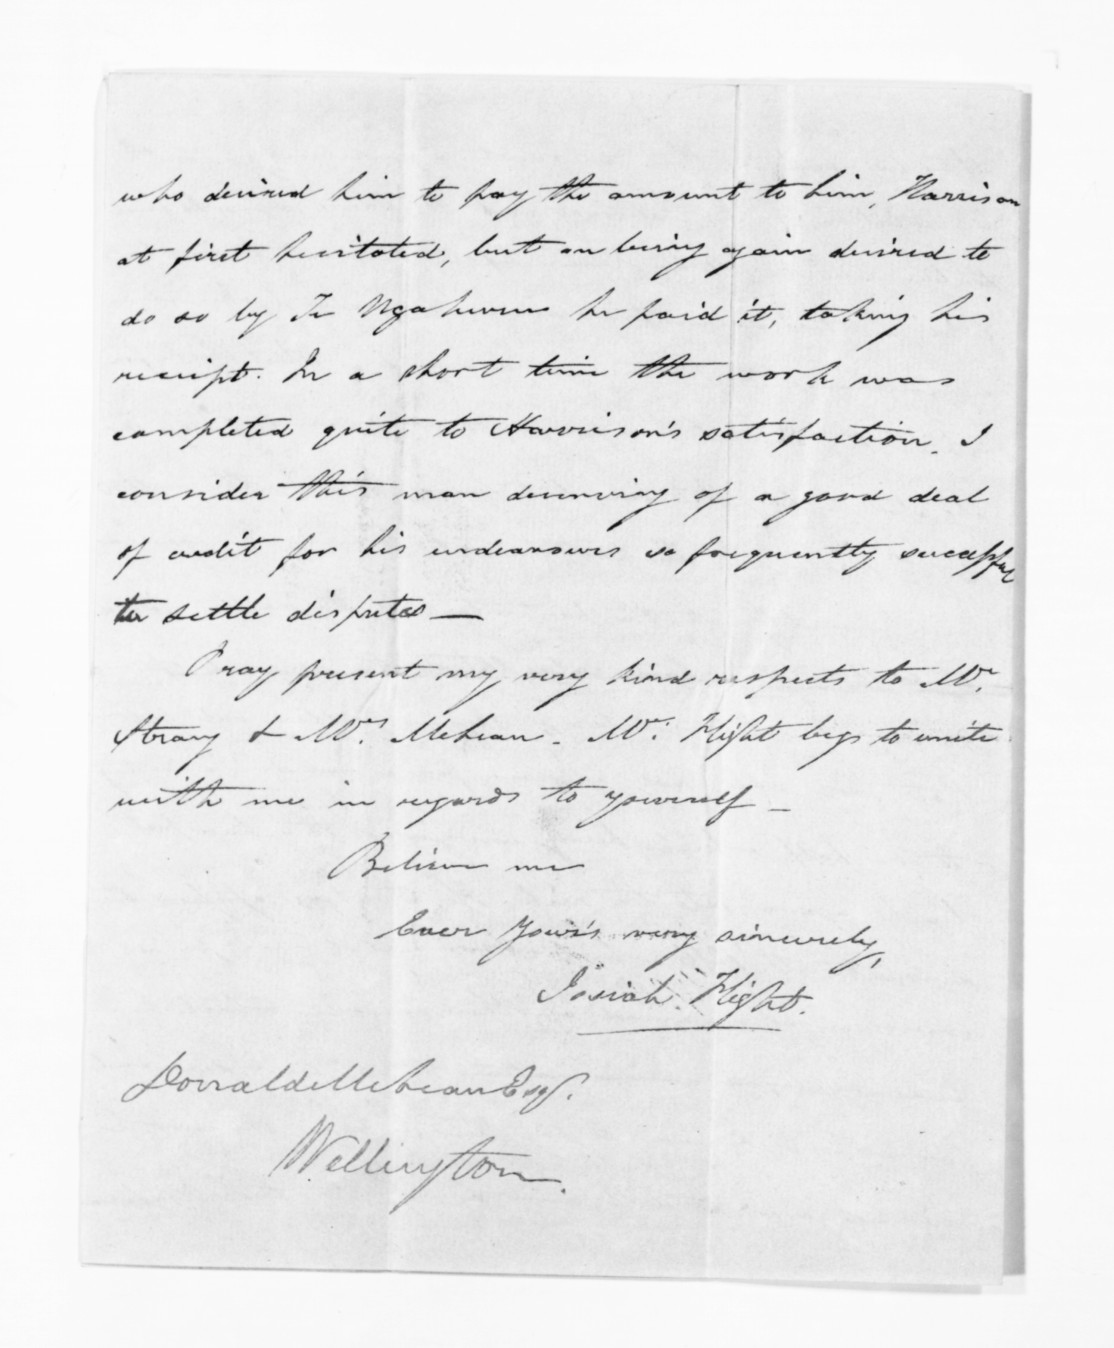 who desired him to pay the amount to him, Harrison
at first hesitated, but on being again desired to
do so by Te Ngahuru he paid it, taking his
receipt. In a short time the work was
completed quite to Harrison's satisfaction. I
consider this man deserving of a good deal
of credit for his endeavours so frequently successful
to settle disputes —
Pray present my very kind respects to Mr.
Strang & Mrs. McLean. Mrs. Flight begs to unite
with me in regards to yourself —
Believe me
Ever Your's very sincerely,
Josiah Flight.
Donald McLean Esq.
Wellington.